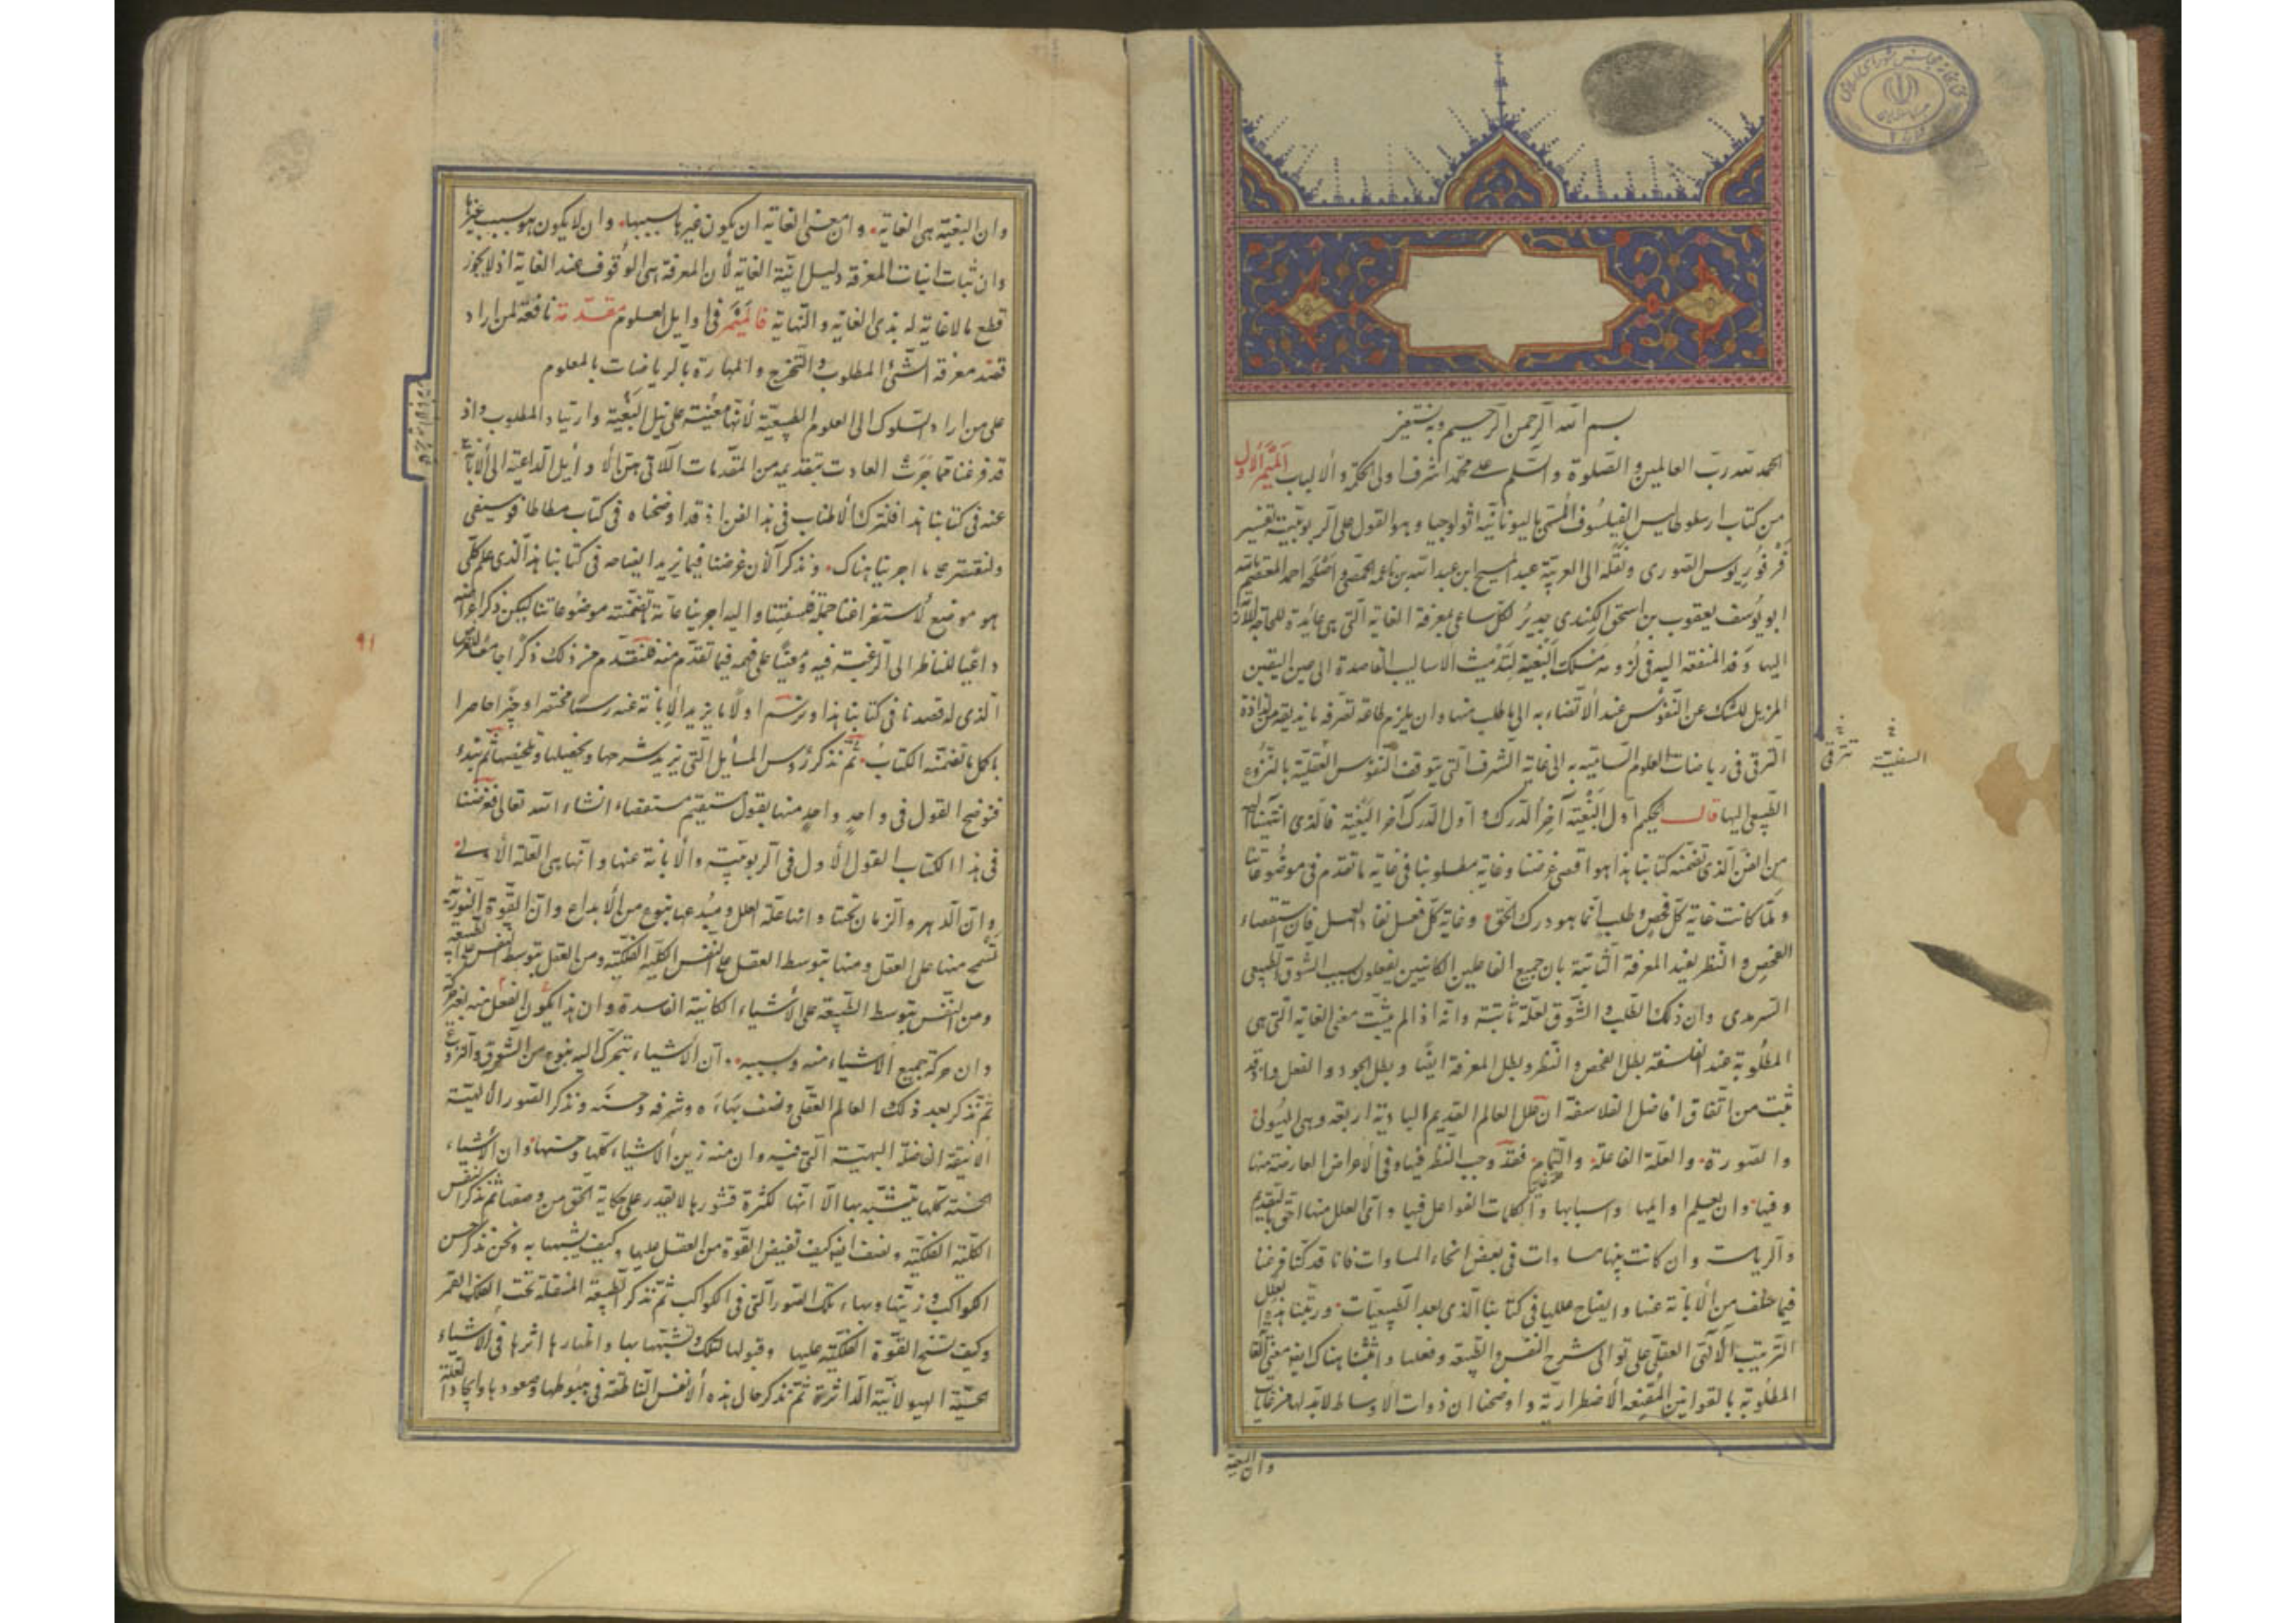 بسم الله الرحمن الرحيم وبه نستعين
الحمد لله رب العالمين والصلوة والسلم على محمد اشرف اولى الحكمة والالباب الميمر الاول
من كتاب ارسطوطاليس الفيلسوف المسمى باليونانية اثولوجيا وهو القول على الربوبية تفسير
فرفوريوس الصورى ونقله الى العربية عبد المسيح ابن عبد الله بن ناعمه الحمصى واصلحه لاحمد المعتصم بالله
ابو يوسف يعقوب بن اسحق الكندى جدير لكل ساعى بمعرفة الغاية التى هى عائدة للحاجة اللازمة
اليها وقدر المنفعه اليه فى لزومه مسلك البغية لتدميث الاساليب القاصدة الى عين اليقين
المزيل للشك عن النفوس عند الافضاء به الى ما طلب منها وان يلزم طاعه تصرفه بما يذيقه من لذاذة
الترقى فى رياضات العلوم السامية به الى غاية الشرف التى يتوقف النفوس العقلية بالنزوع
الطبيعى اليها قال الحكيم اول البغية آخر الدرك واول الدرك آخر البغية فالذى انتهينا اليه
من الفن الذى تضمنه كتابنا هذا هو اقصى غرضنا وغاية مطلوبنا فى غاية ما تقدم فى موضوعاتنا
ولما كانت غاية كل فحص وطلب انما هو درك الحق وغاية كل فعل نفاد العمل فان استقصاء
الفحص والنظر يفيد المعرفة الثابتة بان جميع الفاعلين الكائنين يفعلون بسبب الشوق الطبيعى
السرمدى وان ذلك الطلب والشوق لعلة ثابتة وانه اذا لم يثبت معنى الغاية التى هى
المطلوبة عند الفلسفة بطل الفحص والنظر وبطل المعرفة ايضا وبطل الجود والفعل واذ قد
ثبت من اتفاق افاضل الفلاسفة ان علل العالم القديم البادية اربعة وهى الهيولى
والصورة والعلة الفاعلة والتمام فقد وجب النظر فيها وفى الاعراض العارضة منها
وفيها وان يعلم اوايلها واسبابها والكلمات الفواعل فيها واى العلل منها احق بالتقديم
والرياسة وان كانت بينها مساوات فى بعض انحاء المساوات فانا قد كنا فرغنا
فيما سلف من الابانة عنها وايضاح عللها فى كتابنا الذى بعد الطبيعيات ورتبنا هذه العلل
الترتيب الالهى العقلى على توالى شرح النفس والطبيعة وفعلها واثبتنا هناك ايضا معنى الغاية
المطلوبة بالقوانين المقنعة الاضطرارية واوضحنا ان ذوات الاوساط لابد لها من غايات
وان البغية
وان البغية هى الغاية وان معنى الغاية ان يكون غيرها بسببها وان لا يكون هو بسبب غيرها
وان ثبات انيات المعرفة دليل انية الغاية لأن المعرفة هى الوقوف عند الغاية اذ لا يجوز
قطع ما لا غاية له بذى الغاية والنهاية فالميمر فى اوايل العلوم مقدمة نافعة لمن اراد
قصد معرفة الشئ المطلوب والتخرج والمهارة بالرياضات بالعلوم
على من اراد السلوك الى العلوم الطبيعية لأنها معينة على نيل البغية وارتياد المطلوب واذ
قد فرغنا مما جرت العادت بتقديمه من المقدمات اللاتى هى الاوايل الداعية الى الابانة
عنه فى كتابنا هذا فلنترك الاطناب فى هذا الفن اذ قد اوضحناه فى كتاب مطاطافوسيقى
ولنقتصر على ما اجرينا هناك ونذكر الآن غرضنا فيما نريد ايضاحه فى كتابنا هذا الذى علم كلى
هو موضع لاستفراغنا جملة فلسفتنا واليه اجرينا عامة ما تضمنته موضوعاتنا ليكن ذكر اغراضه
داعيا للناظر الى الرغبة فيه ومعينا على فهمه فيما تقدم منه فنقدم من ذلك ذكرا جامعا للغرض
الذى له قصدنا فى كتابنا هذا ونرسم اولا ما نريد الابانة عنه رسما مختصرا وجيزا حاصرا
بكل ما تضمنه الكتاب ثم نذكر رؤس المسايل التى نريد شرحها وتحصيلها وتلخيصها ثم نبدء
فنوضح القول فى واحد واحد منها بقول مستقيم مستقصاء انشاء الله تعالى فغرضنا
فى هذا الكتاب القول الاول فى الربوبية والابانة عنها وانها هى العلة الاولى
وان الدهر والزمان تحتها وانها علة العلل ومبدعها بنوع من الابداع وان القوة النورية
تسنح منها على العقل ومنها بتوسط العقل على النفس الكلية الفلكية ومن العقل بتوسط النفس على الطبيعة
ومن النفس بتوسط الطبيعة على الأشياء الكائنة الفاسدة وان هذا يكون الفعل منه بغير حركة
وان حركة جميع الأشياء منه وبسببه وان الاشياء تتحرك اليه بنوع من الشوق والنزوع
ثم نذكر بعد ذلك العالم العقلى ونصف بهاءه وشرفه وحسنه ونذكر الصور الالهية
الانيقة الفاضلة البهية التى فيه وان منه زين الأشياء كلها وحسنها وان الأشياء
الحسية كلها تتشبه بها الا انها لكثرة قشورها لا يقدر على حكاية الحق من وصفها ثم نذكر النفس
الكلية الفلكية ونصف ايضا كيف تفيض القوة من العقل عليها وكيف تشبهها به ونحن نذكر حسن
الكواكب وزينتها وبهاء تلك الصور التى فى الكواكب ثم نذكر الطبيعة المنتقلة تحت الفلك القمر
وكيف تسنح القوة الفلكية عليها وقبولها لتلك وتشبهها بها واظهارها اثرها فى الاشياء
الحسية الهيولانية الداثرة ثم نذكر حال هذه الأنفس الناطقة فى هبوطها وصعودها وايجاد العلة
٩١